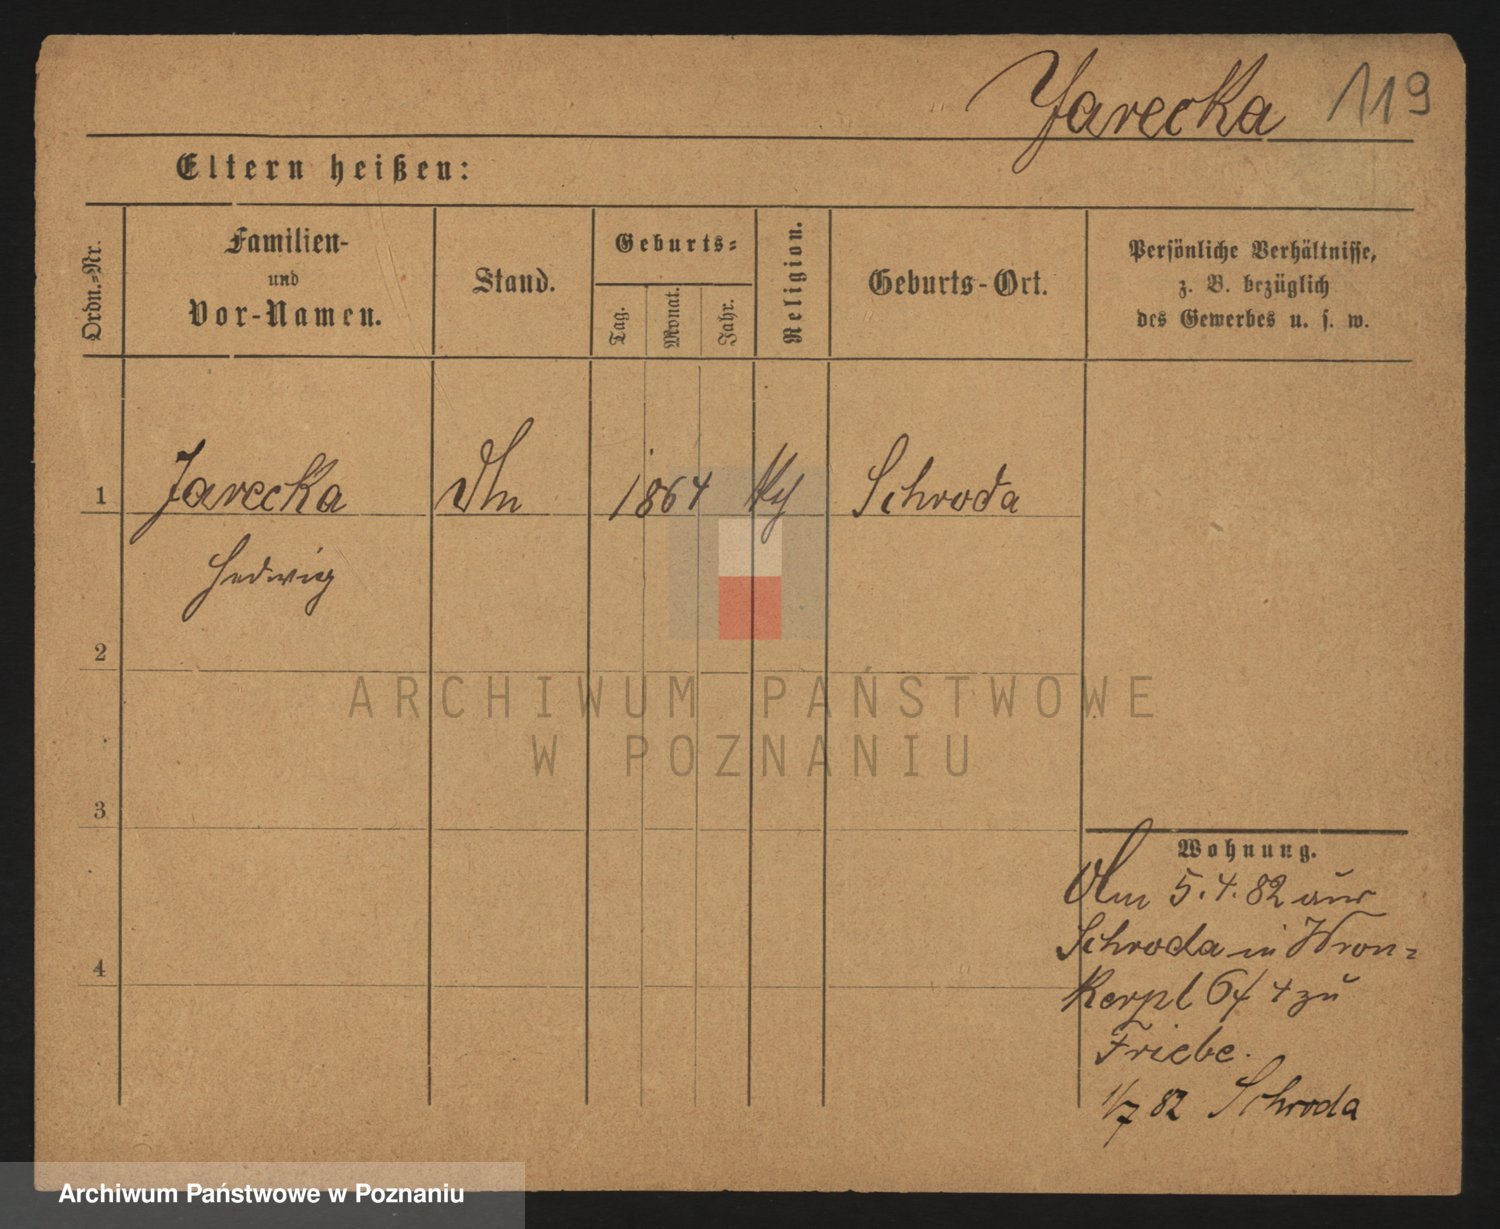 Jarecka 119
Eltern heißen:
Ordn.-Nr.
Familien-
und
Vor-Namen.
Stand.
Geburts-
Tag.
Monat.
Jahr.
Religion.
Geburts-Ort.
Persönliche Verhältnisse,
z. B. bezüglich
des Gewerbes u. s. w.
1 Jarecka 1864 Schroda
Hedwig
2
3
4
ARCHIWUM PAŃSTWOWE
W POZNANIU
Wohnung.
5.4.82 aus
Schroda in Wron-
kerpl 6/4 zu
Friebe.
1/7 82 Schroda
Archiwum Państwowe w Poznaniu